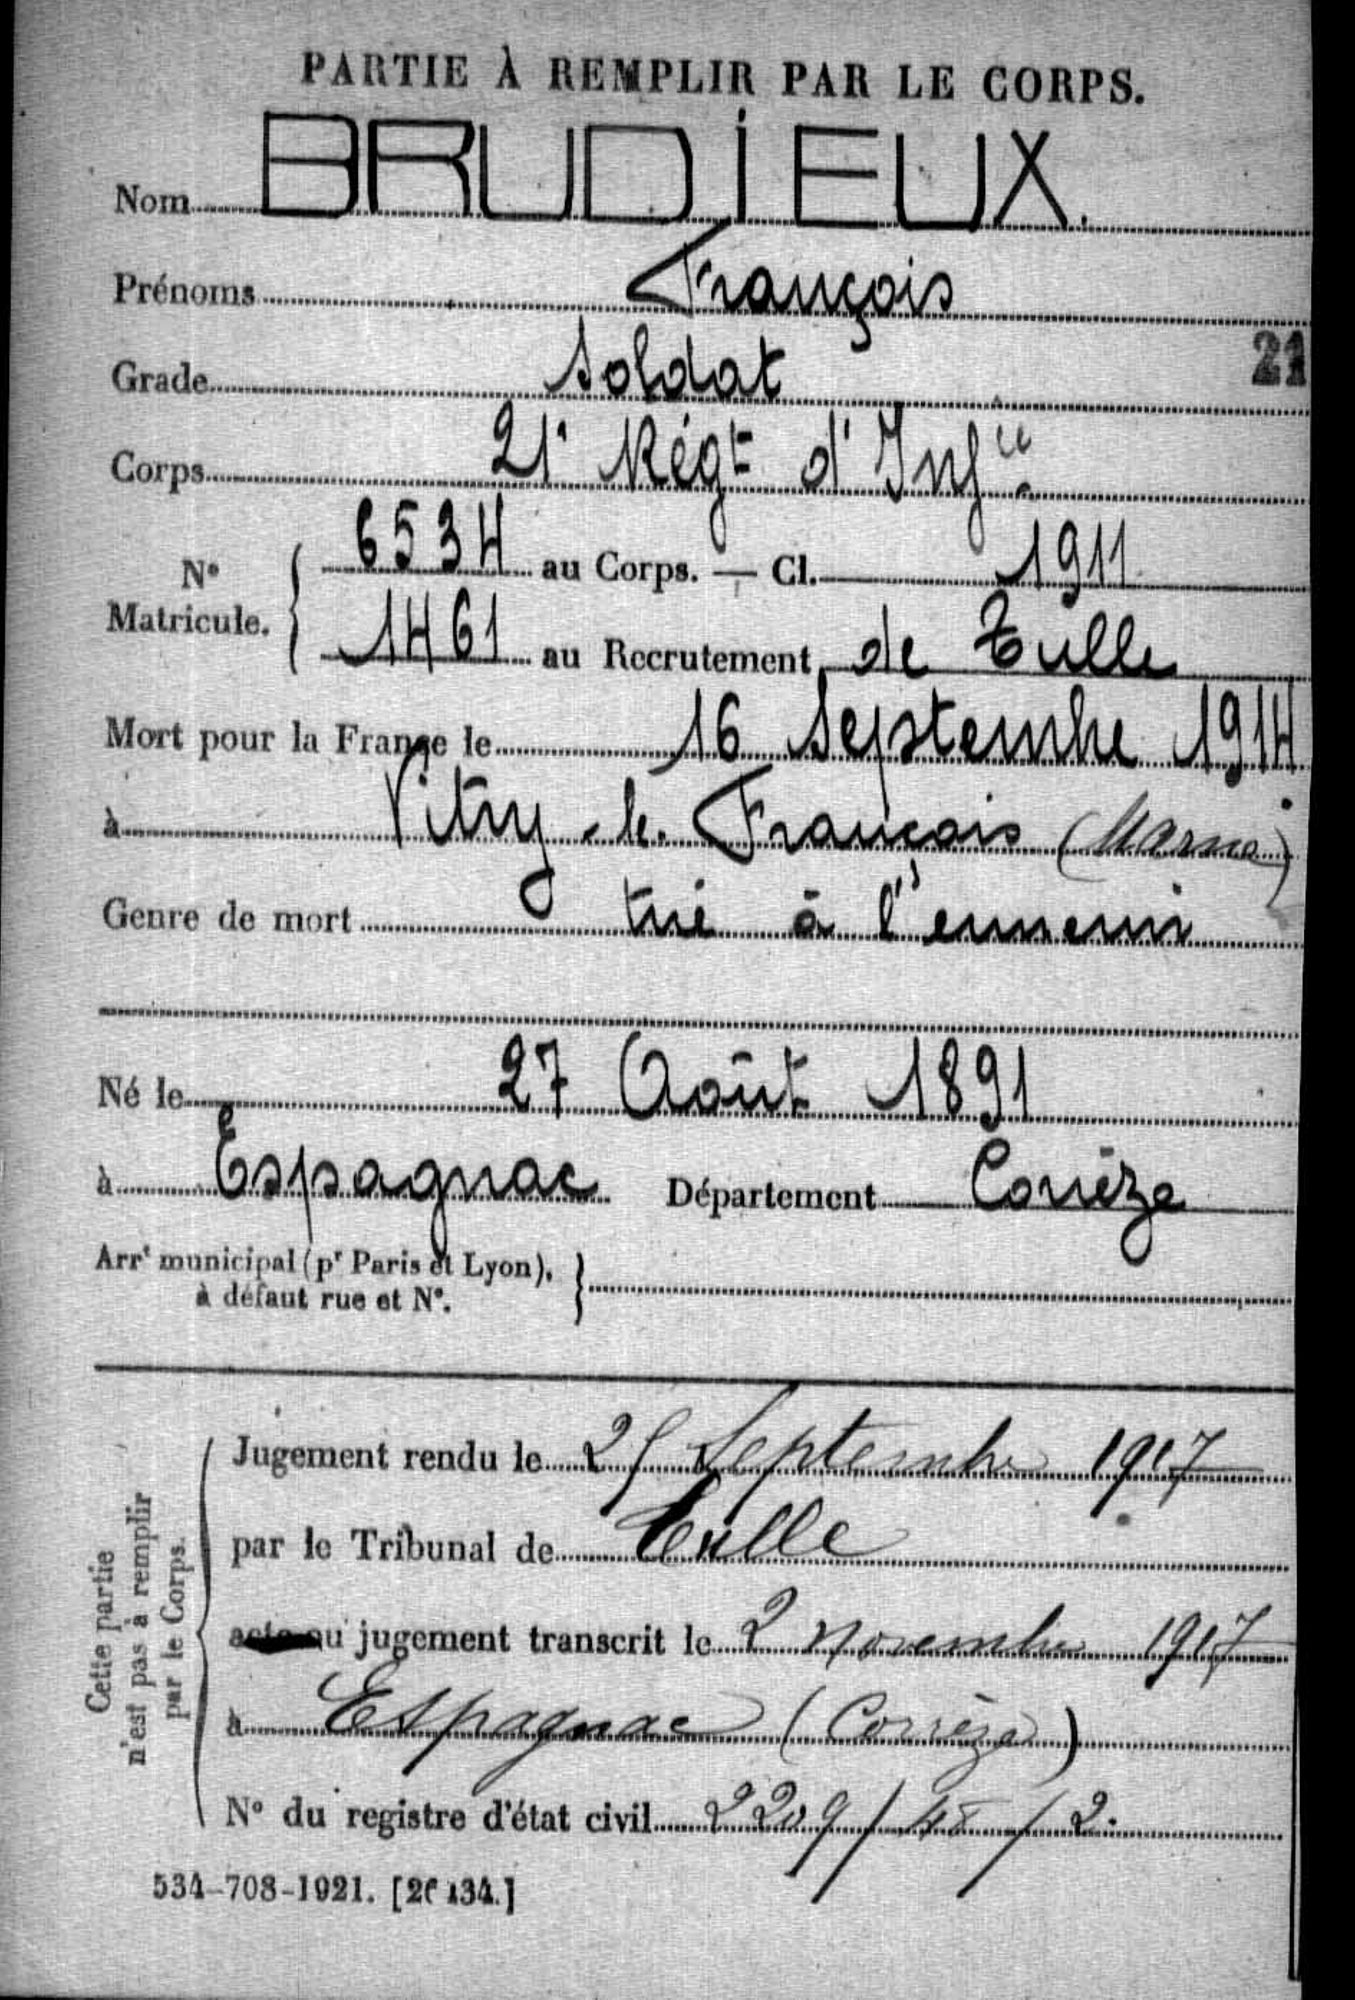 PARTIE À REMPLIR PAR LE CORPS.
Nom BRUDIEUX.
Prénoms François
Grade Soldat
21
Corps 21e Régt d'Infie
N° Matricule. { 6534 au Corps. — Cl. 1911
1461 au Recrutement de Tulle
Mort pour la France le 16 Septembre 1914
à Vitry-le-François (Marne)
Genre de mort tué à l'ennemi
Né le 27 Août 1891
à Espagnac Département Corrèze
Arrt municipal (pr Paris et Lyon),
à défaut rue et N°. }
Cette partie
n'est pas à remplir
par le Corps.
Jugement rendu le 25 Septembre 1917
par le Tribunal de Tulle
acte ou jugement transcrit le 2 novembre 1917
à Espagnac (Corrèze)
N° du registre d'état civil 2209/ /2.
534-708-1921. [26434.]